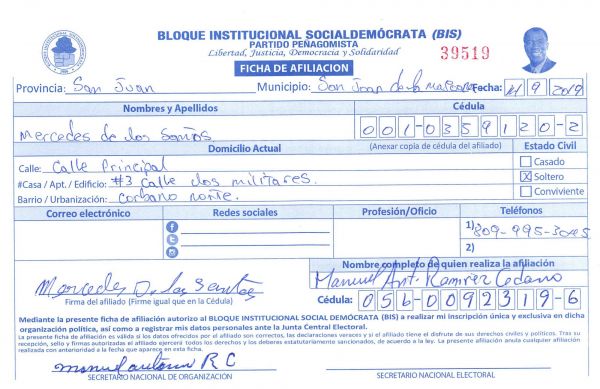 BLOQUE INSTITUCIONAL SOCIALDEMÓCRATA (BIS)
PARTIDO PEÑAGOMISTA
Libertad, Justicia, Democracia y Solidaridad
39519
FICHA DE AFILIACION
Provincia: San Juan Municipio: San Juan de la Maguana Fecha: 14/9/2019
Nombres y Apellidos Cédula
Mercedes de los Santos 001-0359120-2
Domicilio Actual (Anexar copia de cédula del afiliado) Estado Civil
Calle: Calle Principal Casado
#Casa / Apt. / Edificio: #3 calle los militares. X Soltero
Barrio / Urbanización: corbano norte. Conviviente
Correo electrónico Redes sociales Profesión/Oficio Teléfonos
1) 809-995-3045
2)
Nombre completo de quien realiza la afiliación
Mercedes De los Santos Manuel Ant. Ramirez Cedano
Firma del afiliado (Firme igual que en la Cédula) Cédula: 056-0092319-6
Mediante la presente ficha de afiliación autorizo al BLOQUE INSTITUCIONAL SOCIAL DEMÓCRATA (BIS) a realizar mi inscripción única y exclusiva en dicha
organización política, así como a registrar mis datos personales ante la Junta Central Electoral.
La presente ficha de afiliación es válida si los datos ofrecidos por el afiliado son correctos, las declaraciones veraces y si el afiliado tiene el disfrute de sus derechos civiles y políticos. Tras su
recepción, sello y firmas autorizadas el afiliado ejercerá todos los derechos y los deberes estatutariamente sancionados, de acuerdo a la ley. La presente afiliación anula cualquier afiliación
realizada con anterioridad a la fecha que aparece en esta ficha.
R C
SECRETARIO NACIONAL DE ORGANIZACIÓN SECRETARIO NACIONAL ELECTORAL